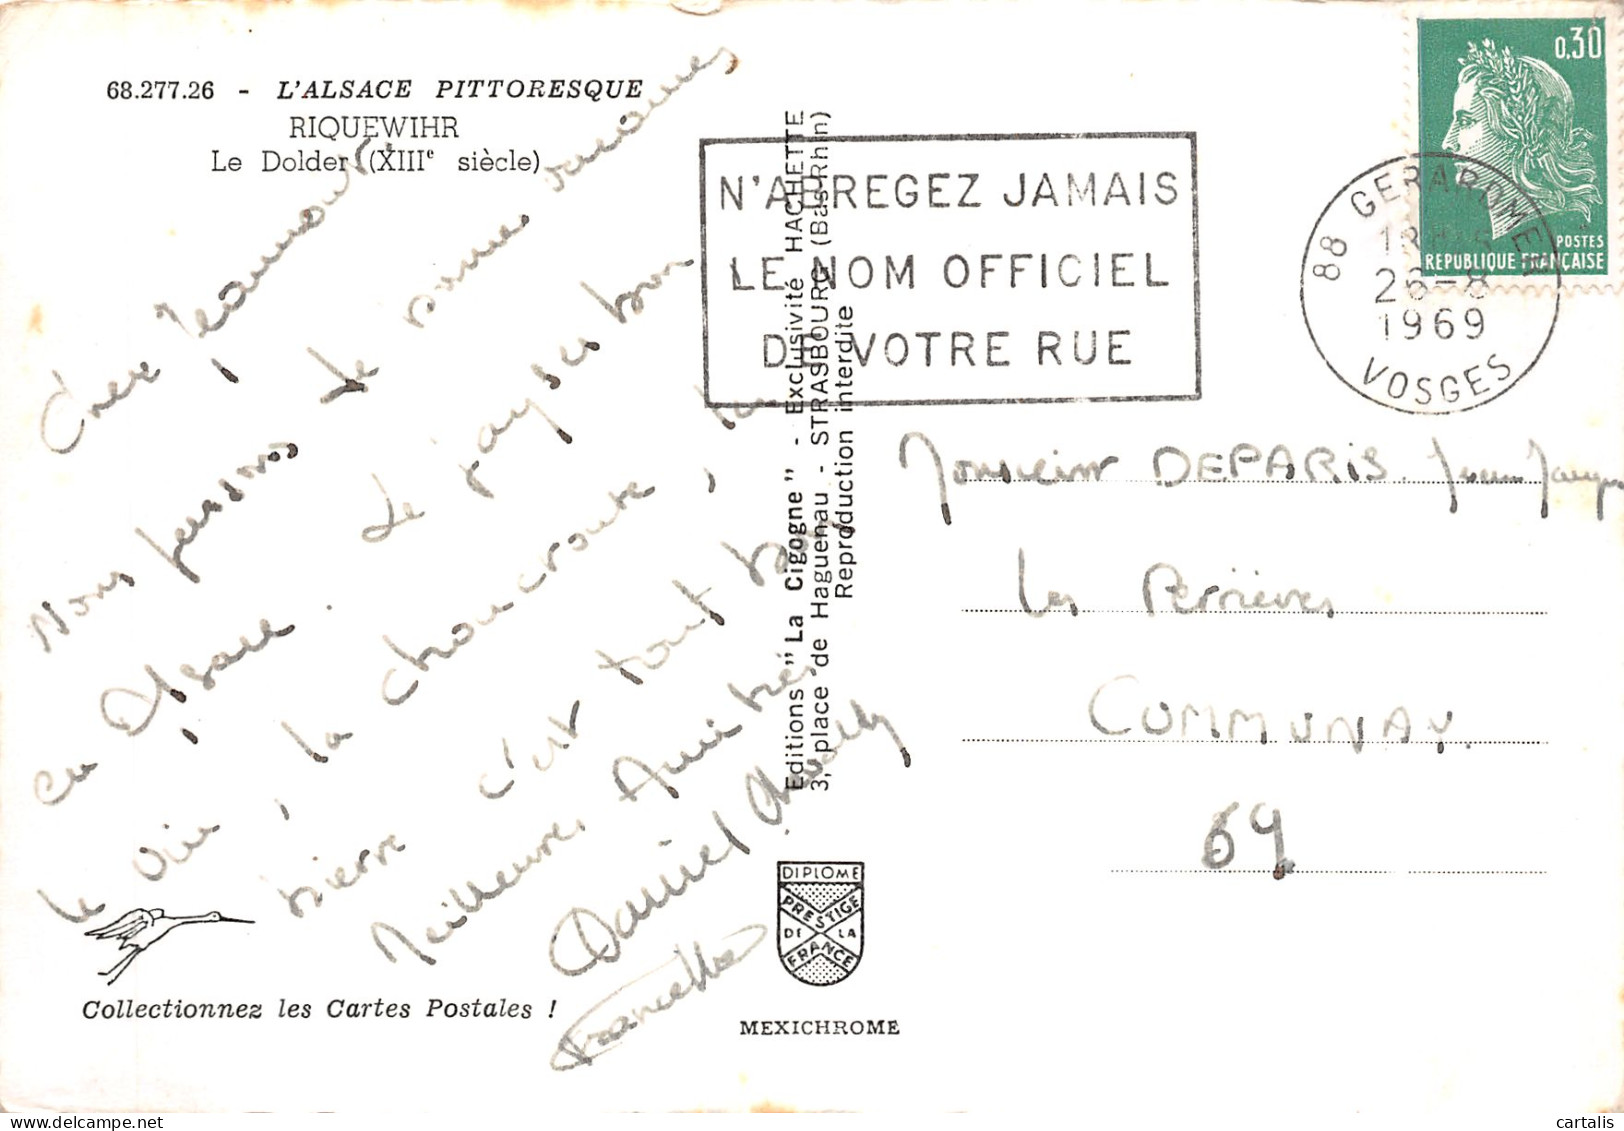 68.277.26 - L'ALSACE PITTORESQUE
RIQUEWIHR
Le Dolder (XIIIe siècle)
Cher Jeannot,
Nous passons de bonnes vacances
en Alsace. Le pays est bon,
le vin, la choucroute, la
bierre c'est tout bon
Meilleures Amitiés
Daniel
Francette
Collectionnez les Cartes Postales !
Editions "La Cigogne" - Exclusivité HACHETTE
3, place de Haguenau - STRASBOURG (Bas-Rhin)
Reproduction interdite
DIPLOME
PRESTIGE
DE LA
FRANCE
MEXICHROME
N'ABREGEZ JAMAIS
LE NOM OFFICIEL
DE VOTRE RUE
88 GERARDMER
26-8
1969
VOSGES
0,30
POSTES
REPUBLIQUE FRANÇAISE
Monsieur DEPARIS Jean Jacques
Les Perrières
COMMUNAY.
69
cartalis